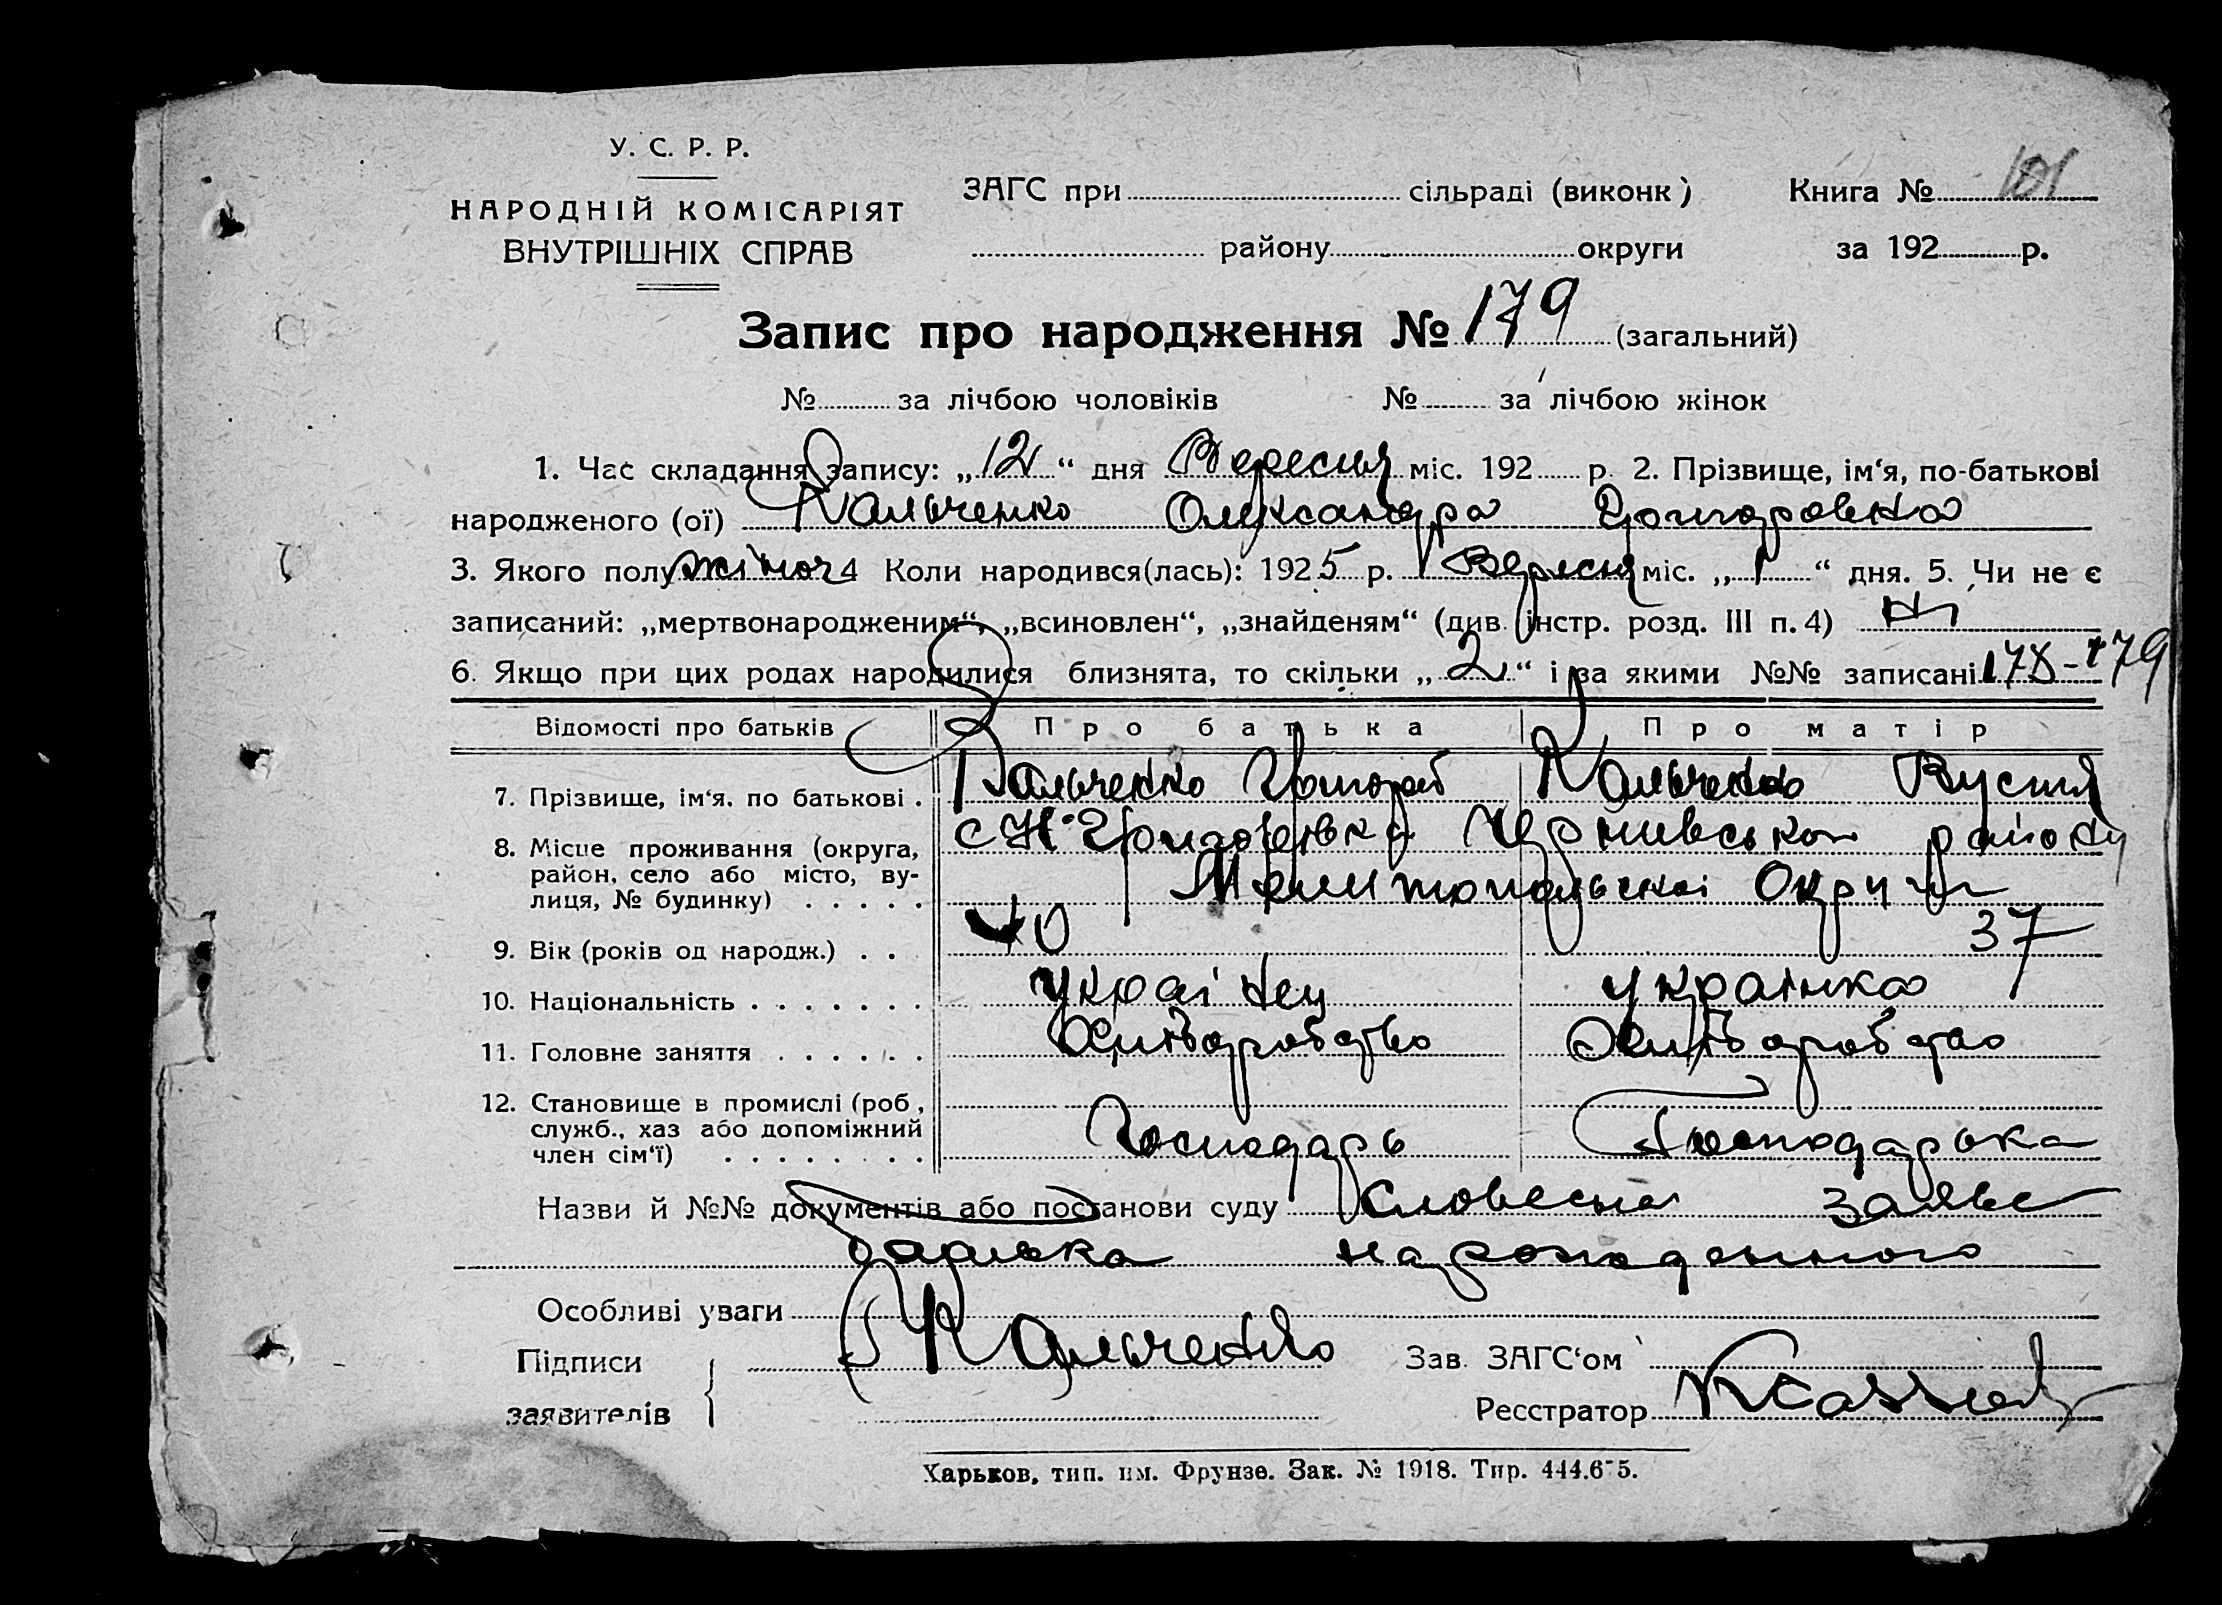 У. С. Р. Р.
НАРОДНІЙ КОМІСАРІЯТ
ВНУТРІШНІХ СПРАВ
ЗАГС при сільраді (виконк )
району округи
Книга № 101
за 192 р.
Запис про народження № 179 (загальний)
№ за лічбою чоловіків № за лічбою жінок
1. Час складання запису: „ 12 “ дня Вересня міс. 192 р. 2. Прізвище, ім‘я, по-батькові
народженого (ої) Кальченко Олександра
3. Якого полу жіноч 4 Коли народився(лась): 1925 р. Вересня міс. „ 1 “ дня. 5. Чи не є
записаний: „мертвонародженим“, „всиновлен“, „знайденям“ (див. інстр. розд. III п. 4) Ні
6. Якщо при цих родах народилися близнята, то скільки „ 2 “ і за якими №№ записані 178-179
Відомості про батьків Про батька Про матір
7. Прізвище, ім‘я. по батькові . Кальченко Григорій Кальченко Вустя
8. Місце проживання (округа, район, село або місто, вулиця, № будинку) с Н- району
Мелитопольскої Округи
9. Вік (років од народж.) . . 40 37
10. Національність . . . . . . . Українец українка
11. Головне заняття . . . . . . Хліборобство Хліборобство
12. Становище в промислі (роб , служб., хаз або допоміжний член сім‘ї) . . . . . . . . Господарь Господарька
Назви й №№ документів або постанови суду Словесна заява
батька народженного
Особливі уваги
Підписи заявителів Кальченко
Зав. ЗАГС‘ом
Реєстратор
Харьков, тип. им. Фрунзе. Зак. № 1918. Тир. 444.675.